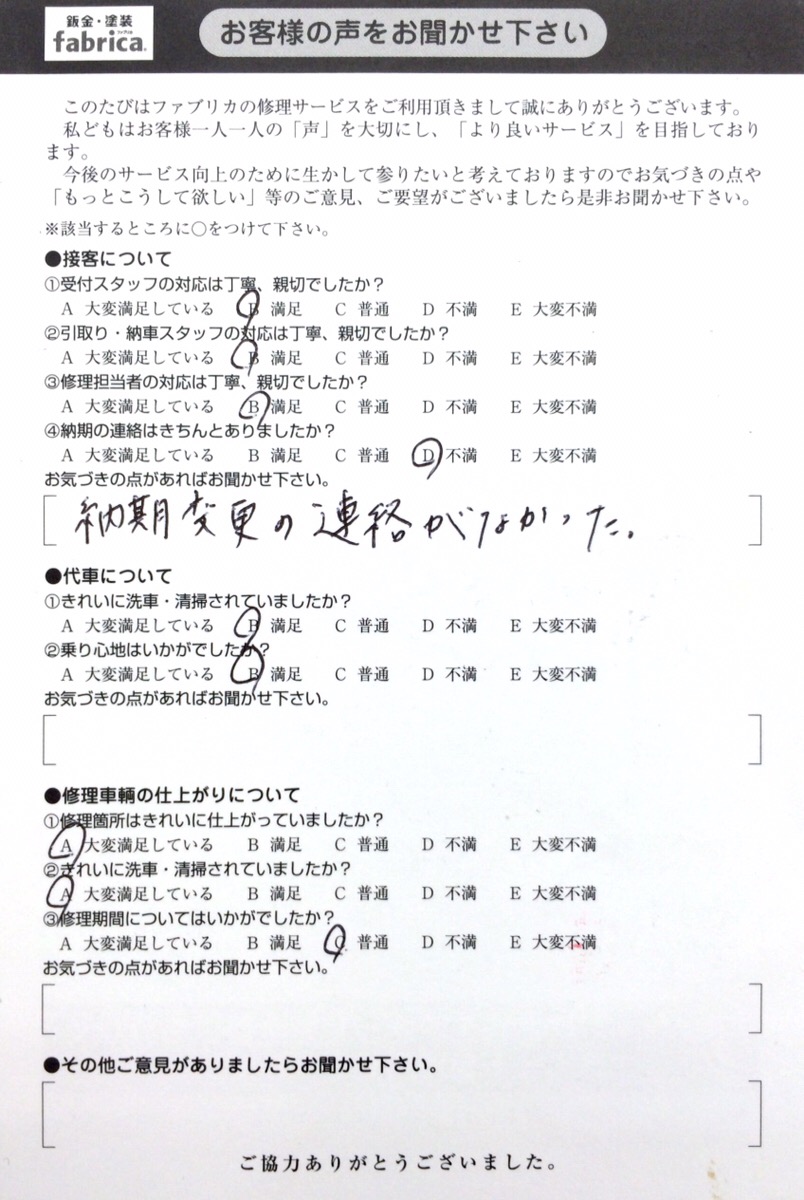 鈑金・塗装
ファブリカ
fabrica.
お客様の声をお聞かせ下さい
このたびはファブリカの修理サービスをご利用頂きまして誠にありがとうございます。
私どもはお客様一人一人の「声」を大切にし、「より良いサービス」を目指しており
ます。
今後のサービス向上のために生かして参りたいと考えておりますのでお気づきの点や
「もっとこうして欲しい」等のご意見、ご要望がございましたら是非お聞かせ下さい。
※該当するところに○をつけて下さい。
●接客について
①受付スタッフの対応は丁寧、親切でしたか？
A 大変満足している B 満足 C 普通 D 不満 E 大変不満
②引取り・納車スタッフの対応は丁寧、親切でしたか？
A 大変満足している B 満足 C 普通 D 不満 E 大変不満
③修理担当者の対応は丁寧、親切でしたか？
A 大変満足している B 満足 C 普通 D 不満 E 大変不満
④納期の連絡はきちんとありましたか？
A 大変満足している B 満足 C 普通 D 不満 E 大変不満
お気づきの点があればお聞かせ下さい。
納期変更の連絡がなかった。
●代車について
①きれいに洗車・清掃されていましたか？
A 大変満足している B 満足 C 普通 D 不満 E 大変不満
②乗り心地はいかがでしたか？
A 大変満足している B 満足 C 普通 D 不満 E 大変不満
お気づきの点があればお聞かせ下さい。
●修理車輌の仕上がりについて
①修理箇所はきれいに仕上がっていましたか？
A 大変満足している B 満足 C 普通 D 不満 E 大変不満
②きれいに洗車・清掃されていましたか？
A 大変満足している B 満足 C 普通 D 不満 E 大変不満
③修理期間についてはいかがでしたか？
A 大変満足している B 満足 C 普通 D 不満 E 大変不満
お気づきの点があればお聞かせ下さい。
●その他ご意見がありましたらお聞かせ下さい。
ご協力ありがとうございました。